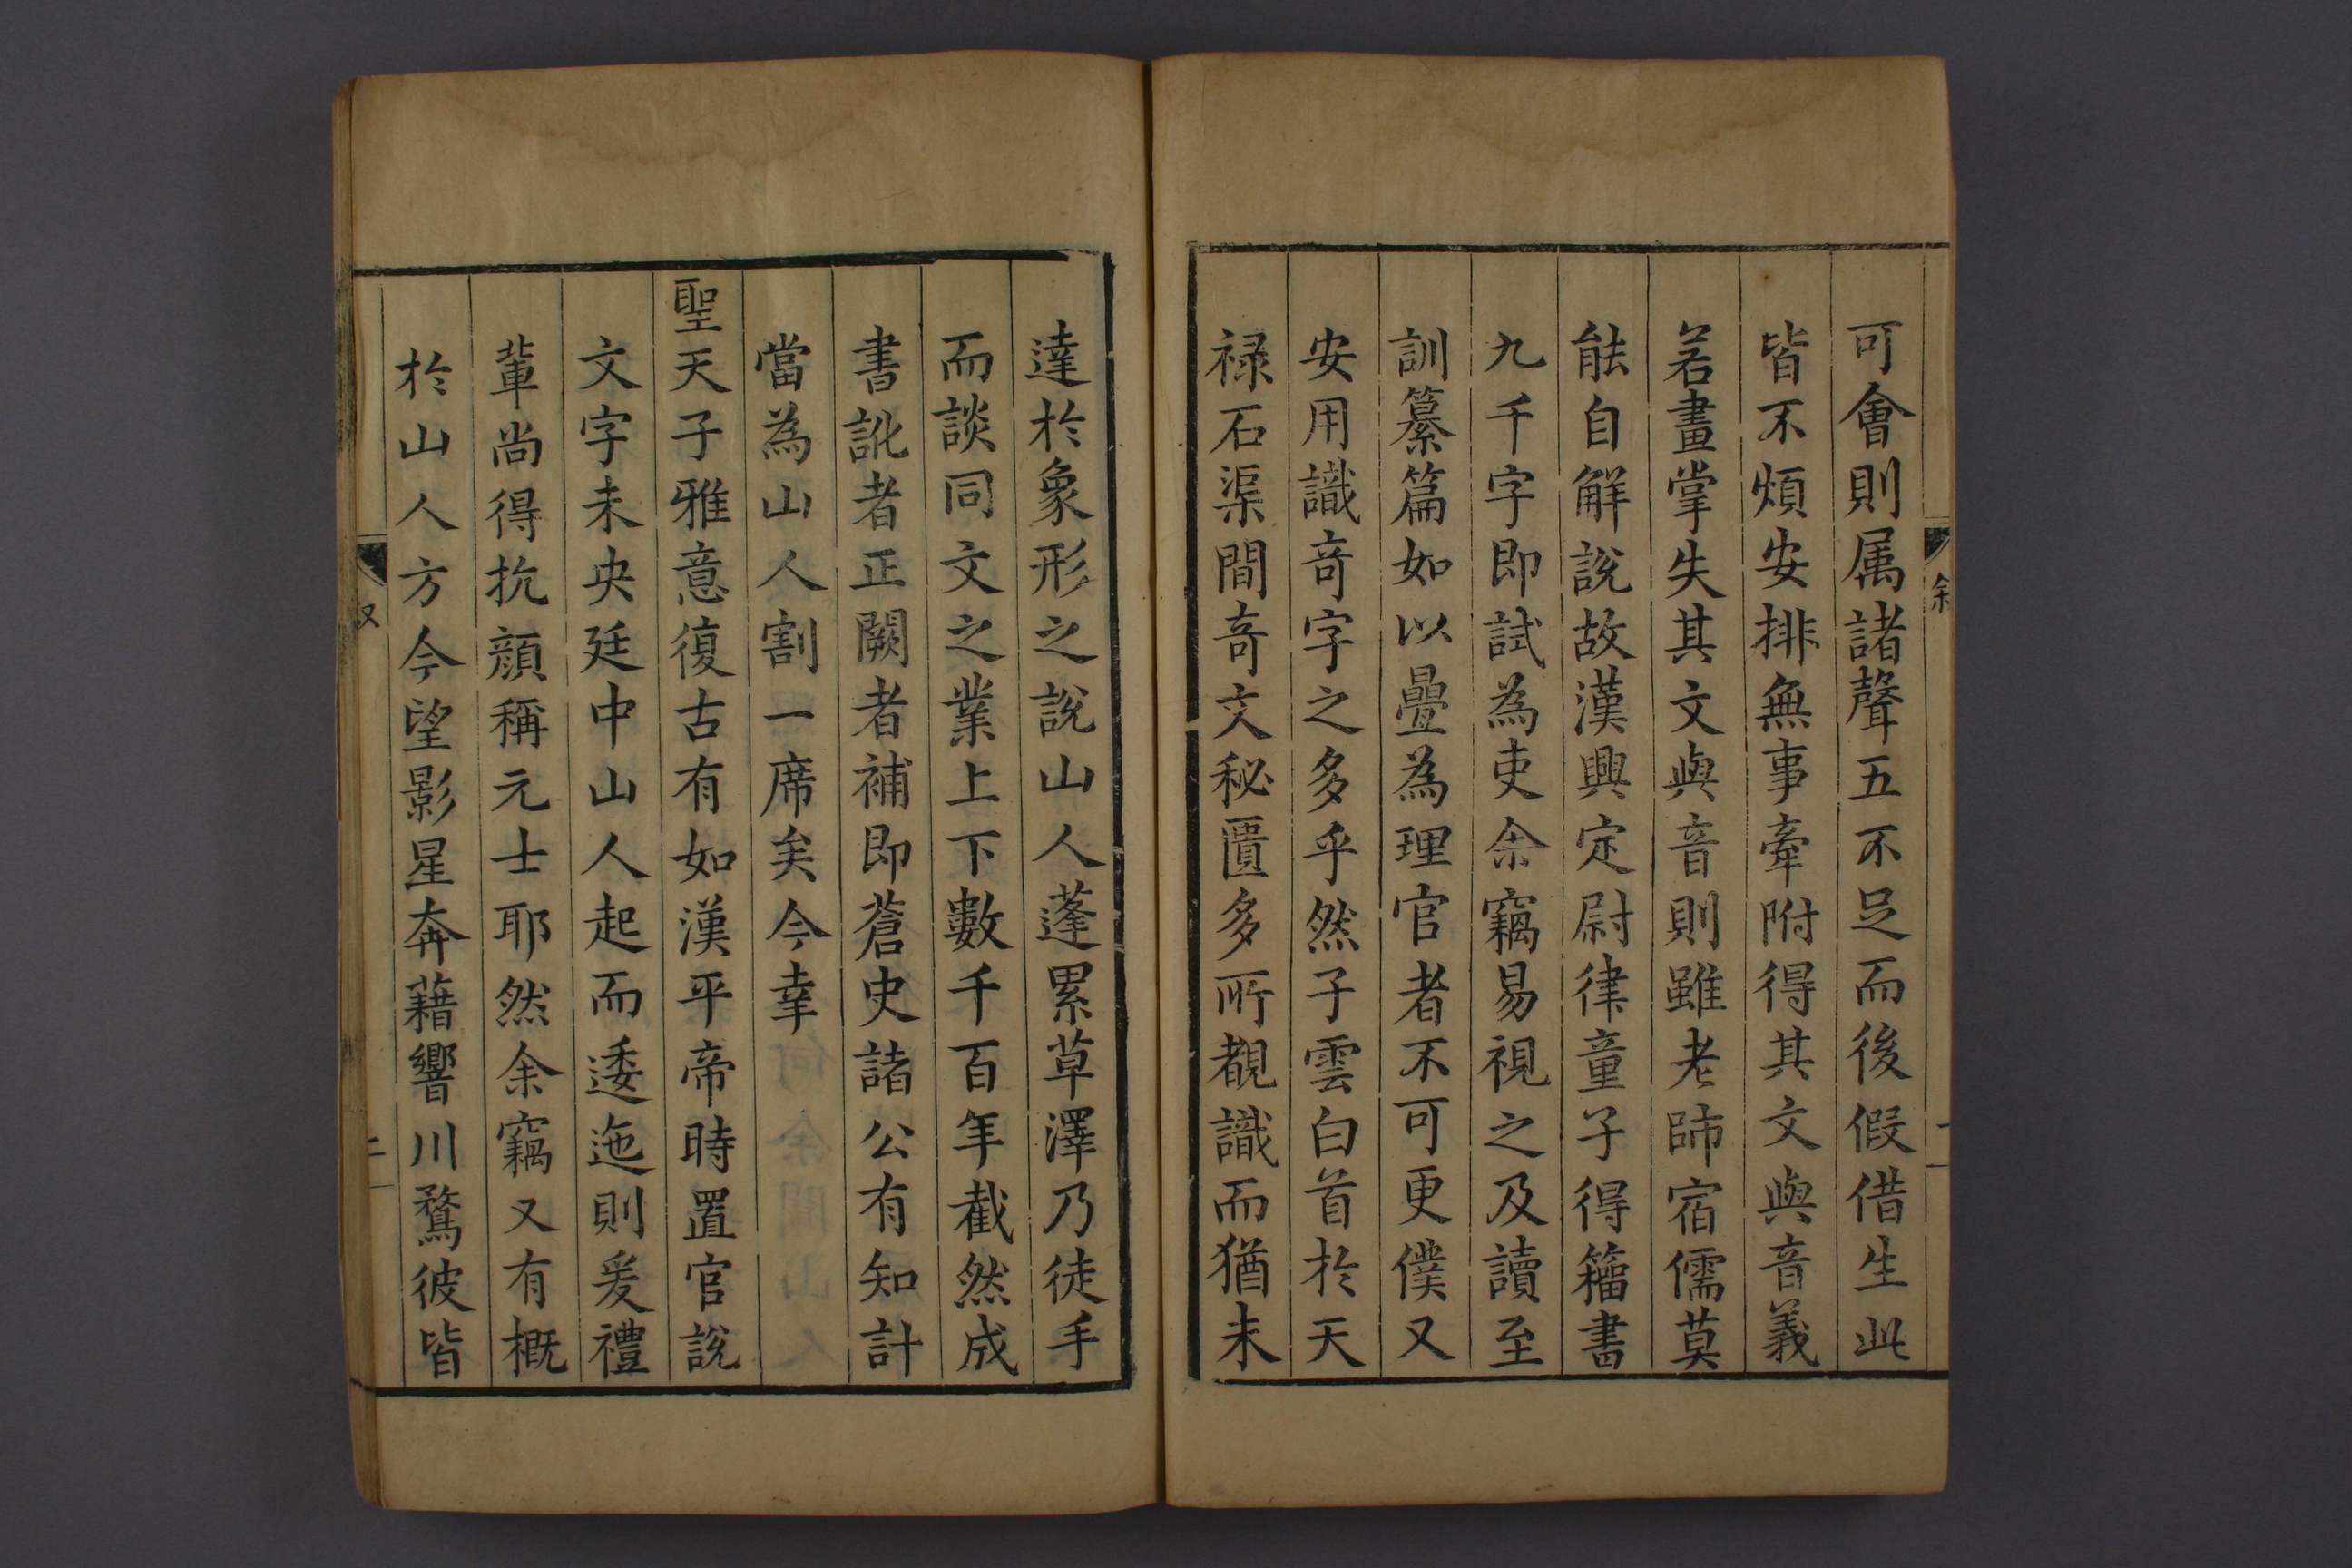 可會則属諸聲五不足而後假借生此
皆不煩安排無事牽附得其文與音義
若畫掌失其文與音則雖老師宿儒莫
能自解說故漢興定尉律童子得籀書
九千字即試為吏余竊易視之及讀至
訓纂篇如以疊為理官者不可更僕又
安用識奇字之多乎然子雲白首於天
祿石渠間奇文秘匱多所覩識而猶未
達於象形之說山人蓬累草澤乃徒手
而談同文之業上下數千百年截然成
書訛者正闕者補即蒼史諸公有知計
當為山人割一席矣今幸
聖天子雅意復古有如漢平帝時置官說
文字未央廷中山人起而逶迤則爰禮
輩尚得抗顏稱元士耶然余竊又有概
於山人方今望影星奔藉響川騖彼皆